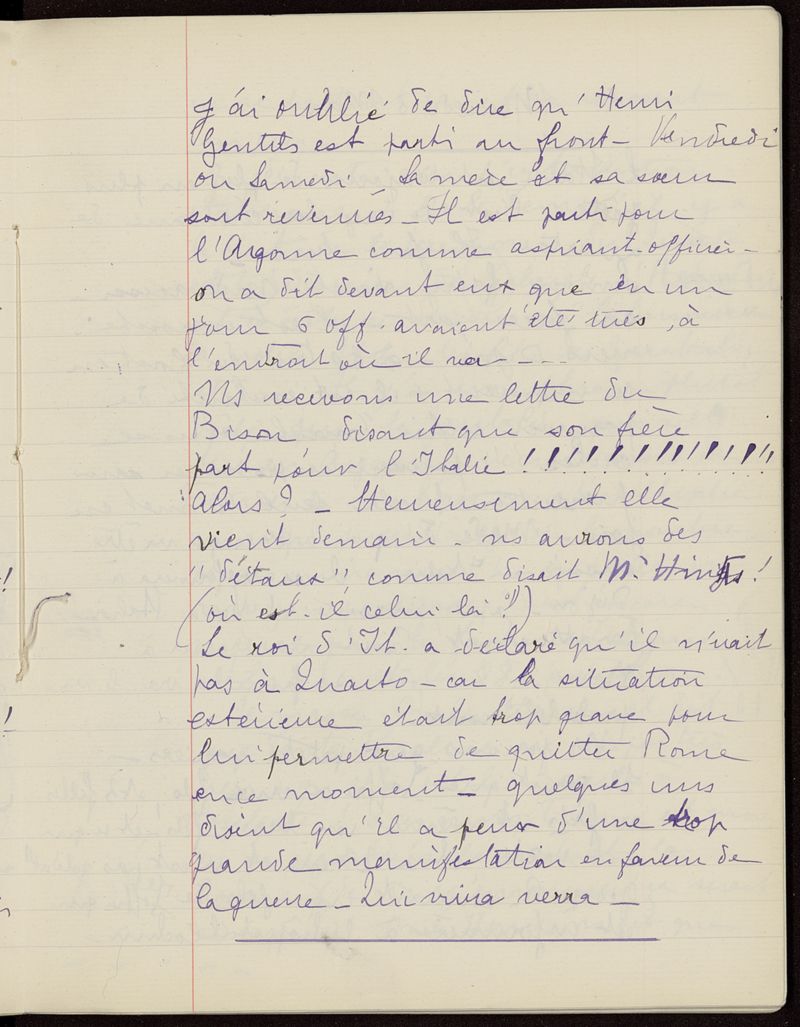 J'ai oublié de dire qu'Henri
Gentils est parti au front - Vendredi
ou Samedi - Sa mère et sa sœur
sont revenues - Il est parti pour
l'Argonne comme aspirant-officier -
on a dit devant eux que en un
jour 6 off. avaient été tués, à
l'endroit où il va - - - -
Ns recevons une lettre du
Bison disant que son frère
part pour l'Italie !!!!!!!!!!!!!!
Alors? - Heureusement elle
vient demain - ns aurons des
"détaux", comme disait Mr !
(où est-il celui là ?)
Le roi d'It. a déclaré qu'il n'irait
pas à Quarto - car la situation
extérieure était trop grave pour
lui permettre de quitter Rome
en ce moment - quelques uns
disent qu'il a peur d'une trop
grande manifestation en faveur de
la guerre - Qui vivra verra -